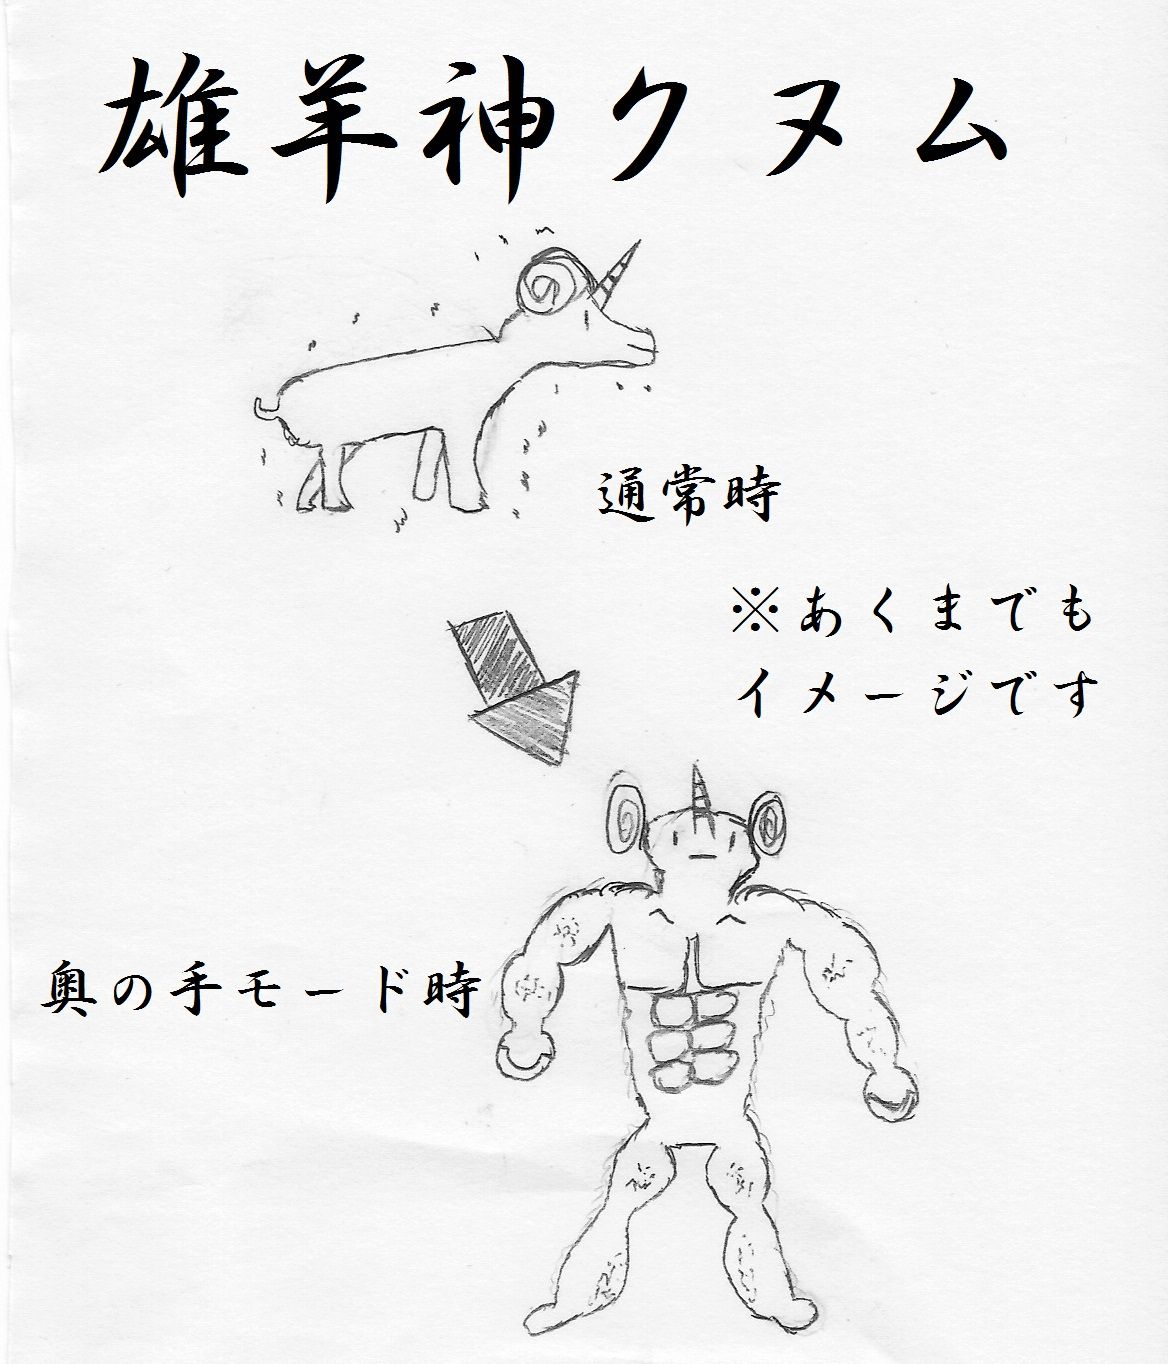 雄羊神クヌム
通常時
※あくまでも
イメージです
奥の手モード時